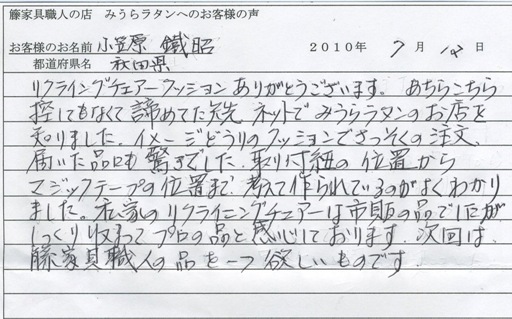 籐家具職人の店　みうらラタンへのお客様の声
お客様のお名前 小笠原 鐵昭　2010年 7月 12日
都道府県名 秋田県
リクライングチェアークッションありがとうございます。あちらこちら
控してもなくて諦めてた矢先 ネットでみうらラタンのお店を
知りました。イメージどうりのクッションでさっそくの注文、
届いた品にも驚きでした。取り付紐の位置から
マジックテープの位置まで考えて作られているのがよくわかり
ました。我家のリクライニングチェアーは市販の品でしたが
しっくり収まって プロの品と感じております。次回は
籐家具職人の品を一つ欲しいものです。